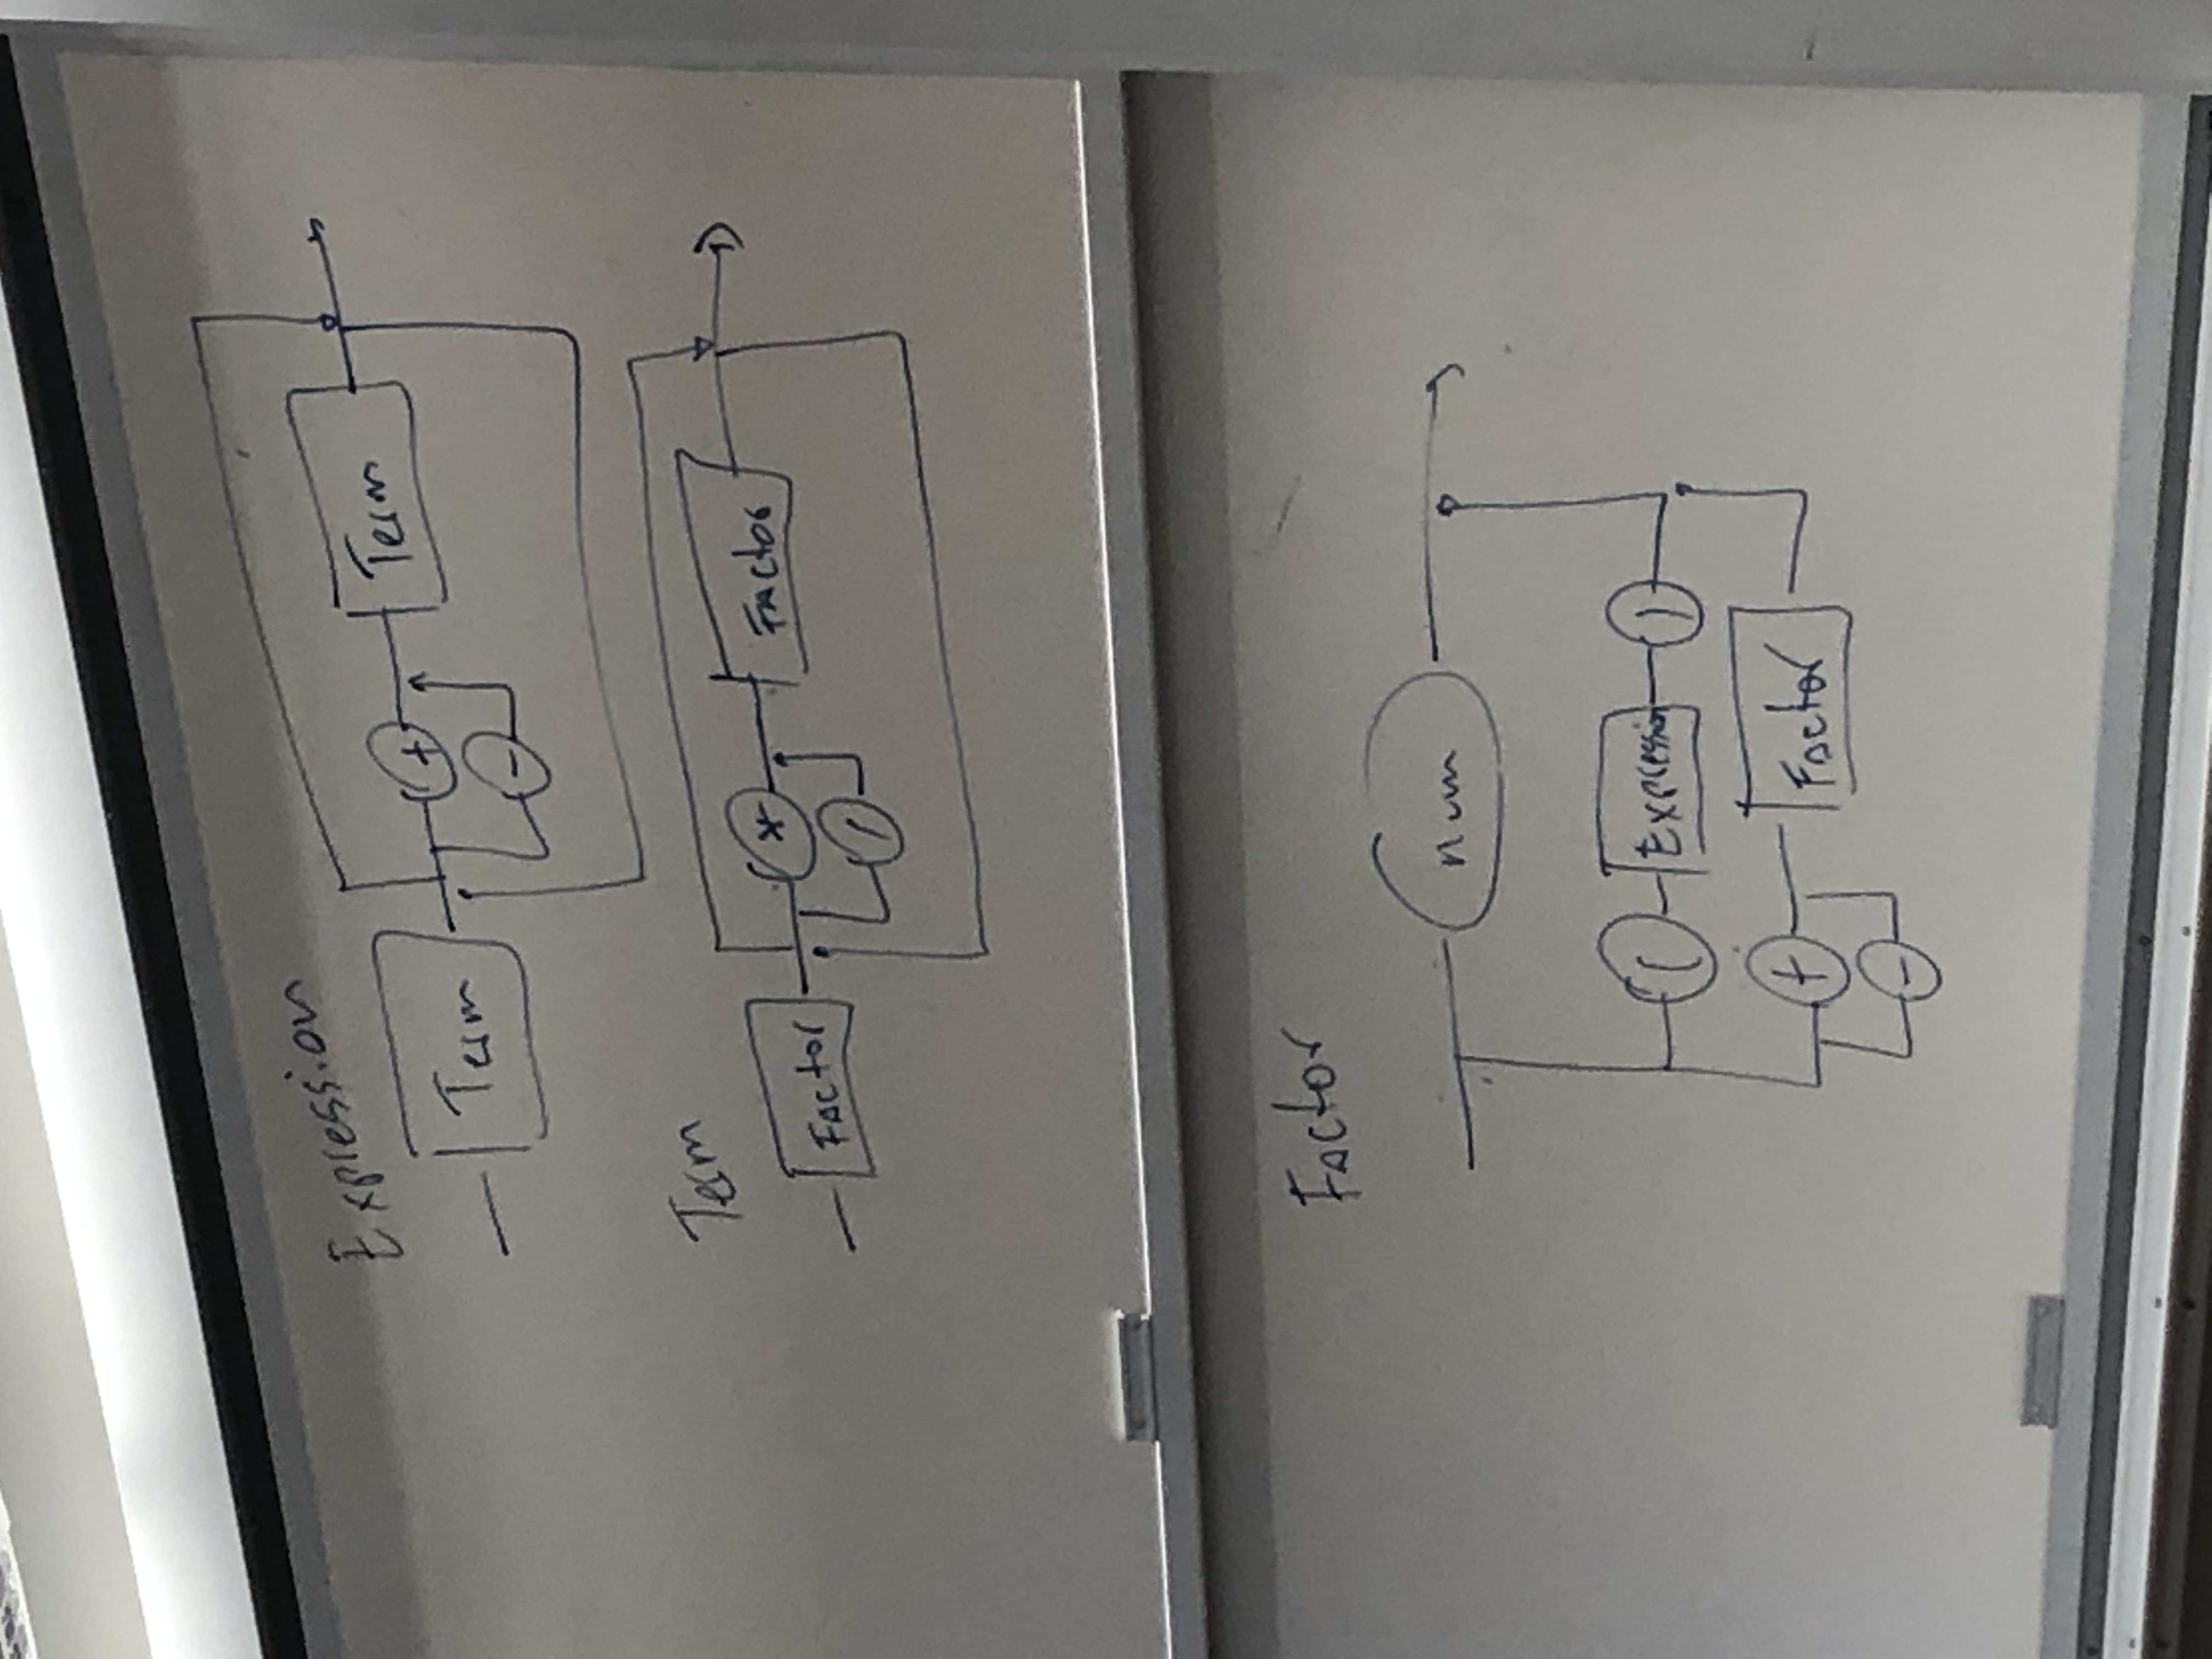 Expression
Term + Term
-
Term
Factor * Factor
/
Factor
num
( Expression )
+ Factor
-